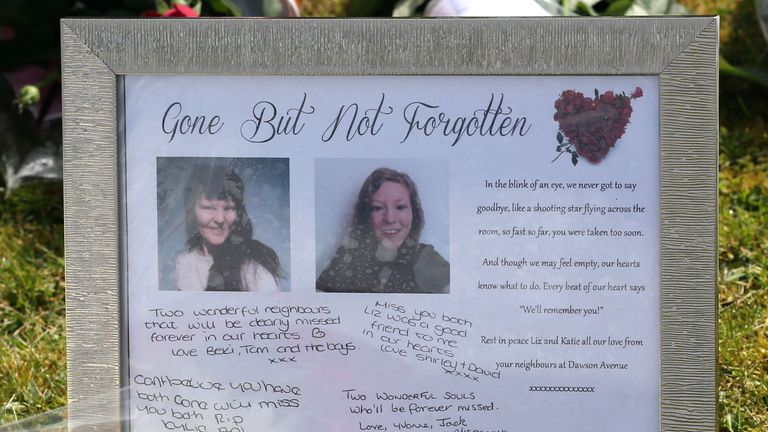 Gone But Not Forgotten
In the blink of an eye, we never got to say
goodbye, like a shooting star flying across the
room, so fast so far, you were taken too soon.
And though we may feel empty, our hearts
know what to do. Every beat of our heart says
"We'll remember you!"
Rest in peace Liz and Katie all our love from
your neighbours at Dawson Avenue
xxxxxxxxxxxxx
Two wonderful neighbours
that will be dearly missed
forever in our hearts.
Love Beki, Tom and the boys.
xxx
Miss you both
Liz was a good
friend to me
in our hearts
love Shirley + David
xxxx
Can't believe you have
both gone will miss
you both Rip
Two Wonderful souls
who'll be forever missed.
Love, Yvonne, Jack